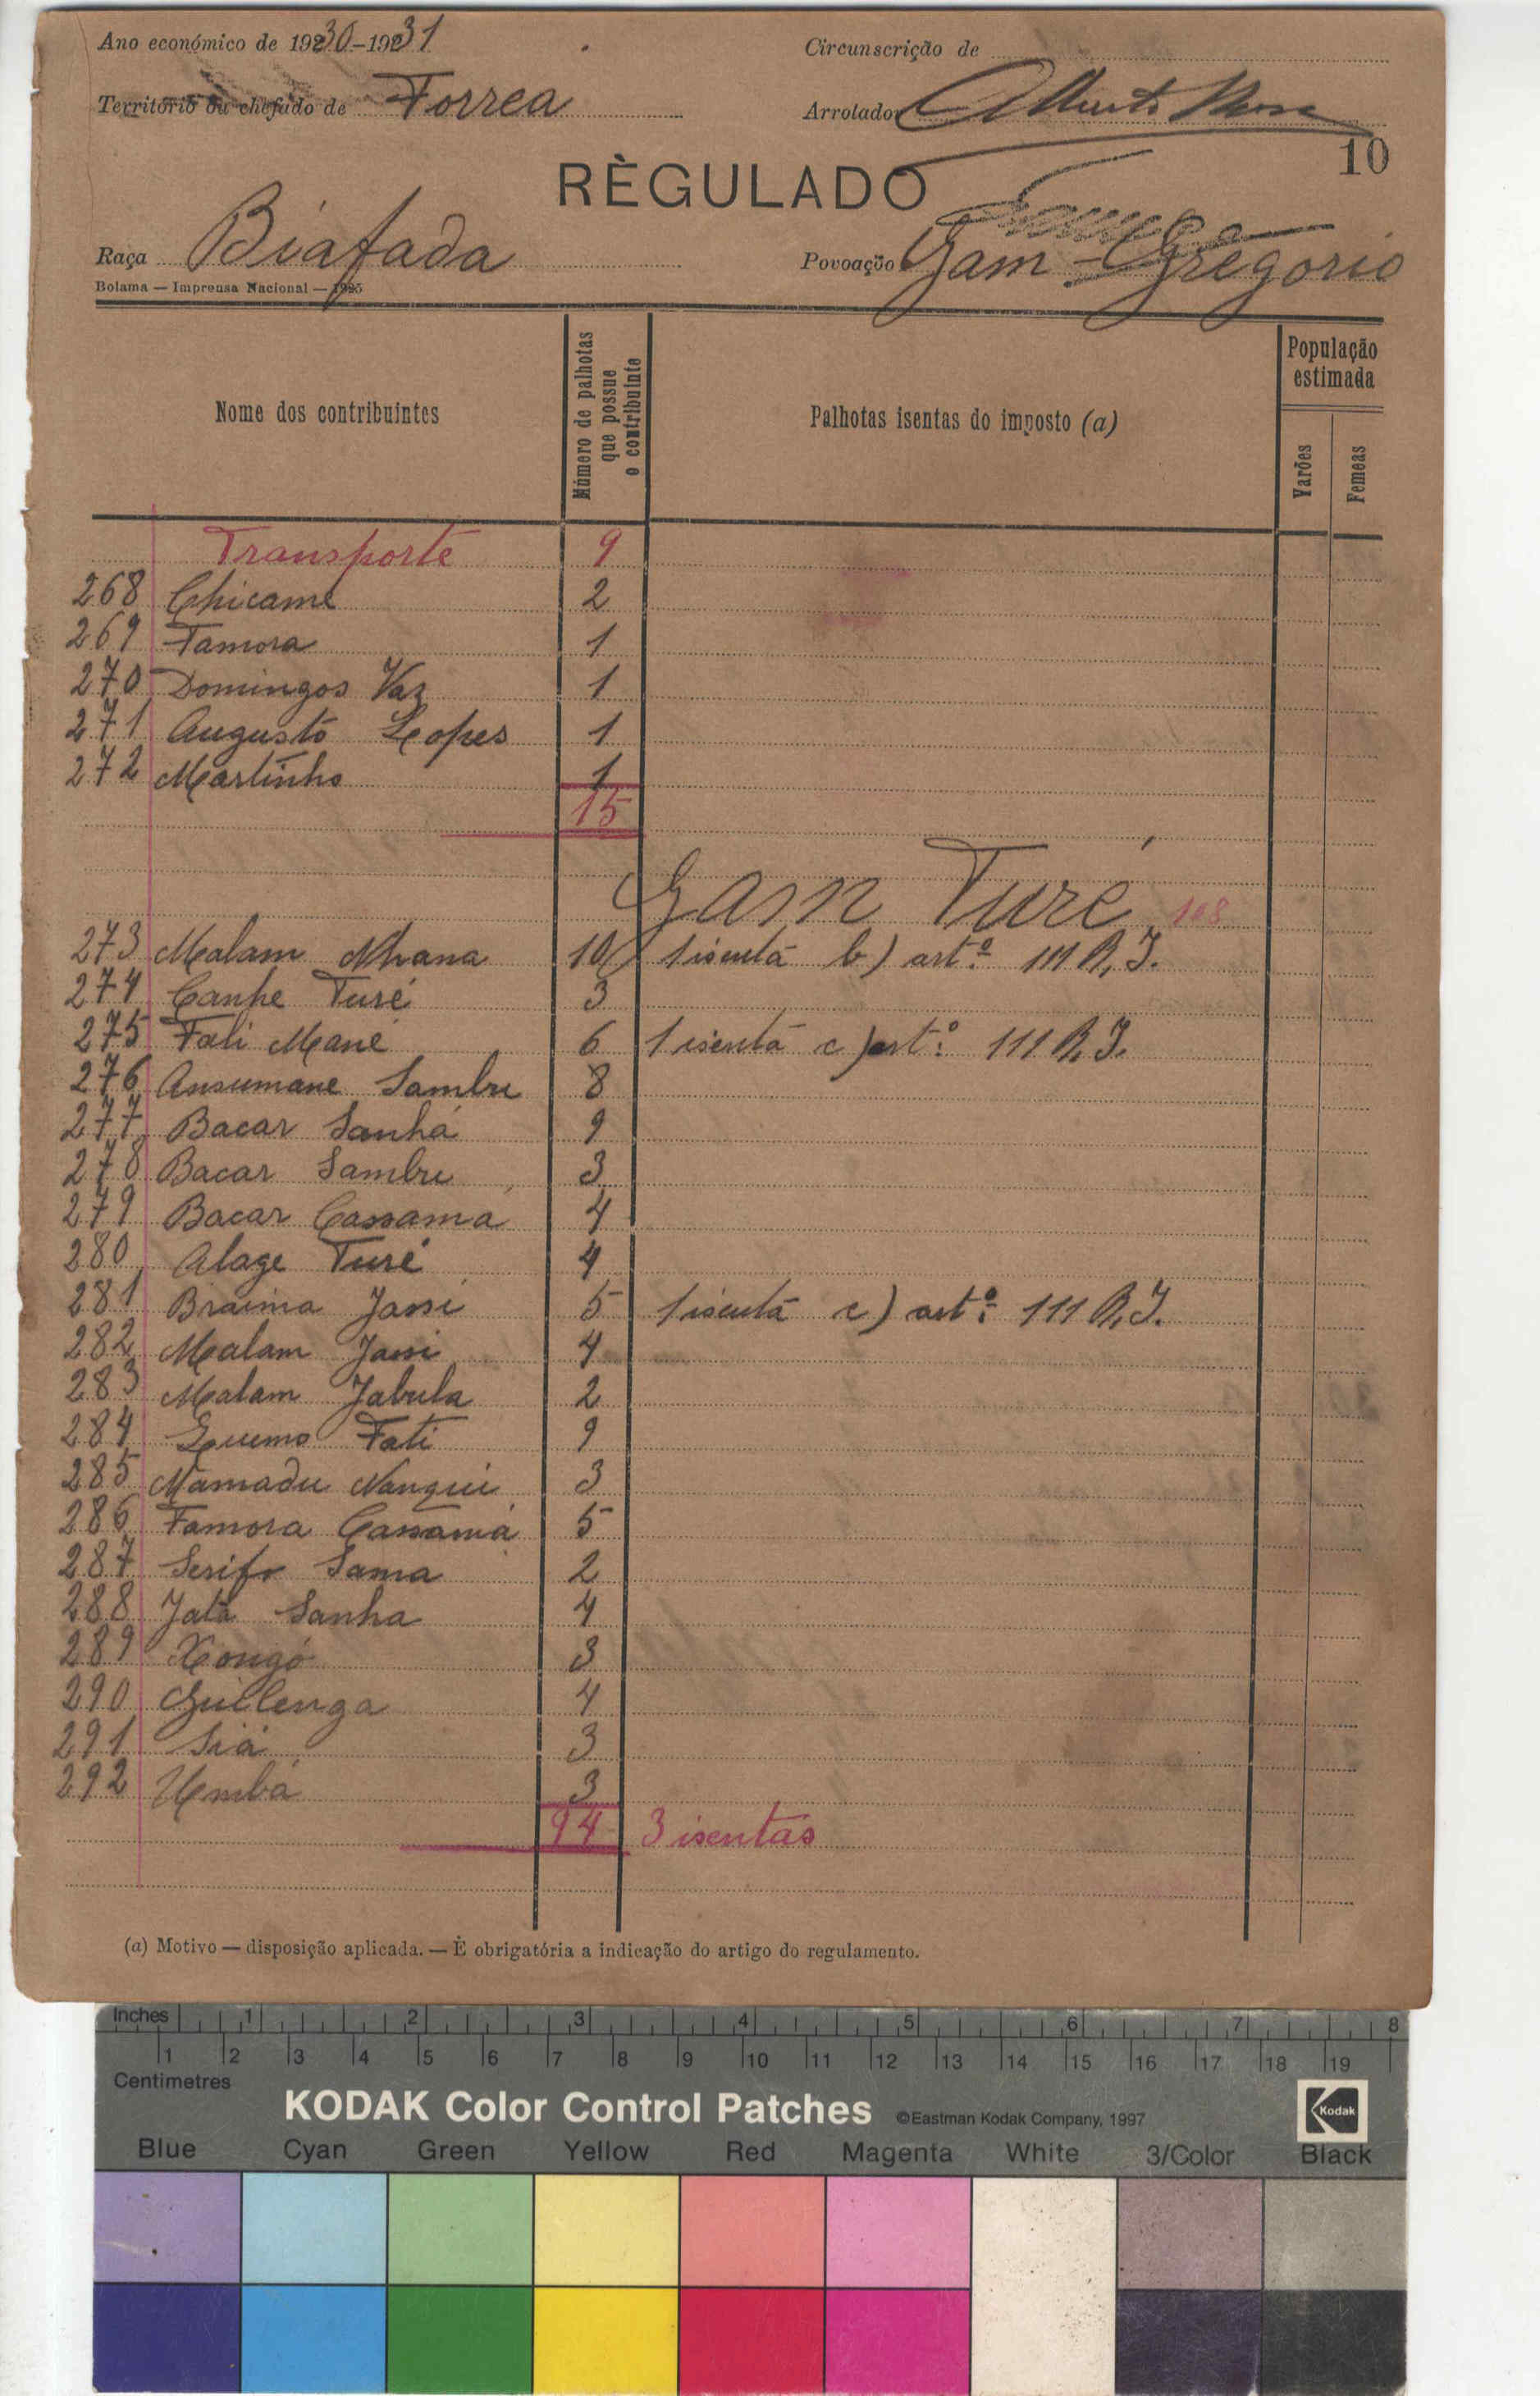 Ano económico de 1930-1931
Circunscrição de
Território ou chefado de Forrea
Arrolador Alberto
10
RÈGULADO
Raça Biafada
Povoação Gam-Gregorio
Bolama — Imprensa Nacional — 1925
Nome dos contribuintes
Número de palhotas que possue o contribuinte
Palhotas isentas do imposto (a)
População estimada
Varões
Femeas
Transporte 9
268 Chicame 2
269 Famora 1
270 Domingos Vaz 1
271 Augusto Lopes 1
272 Martinho 1
15
Gam Turé 108
273 Malam Nhana 10 1 isenta b) artº 111 R.I.
274 Canhe Turé 3
275 Fali Mané 6 1 isenta c) artº 111 R.I.
276 Ansumane Sambu 8
277 Bacar Sanhá 9
278 Bacar Sambu 3
279 Bacar Cassamá 4
280 Alage Turé 4
281 Braima Jassi 5 1 isenta c) artº 111 R.I.
282 Malam Jassi 4
283 Malam Jabula 2
284 Quemo Fati 9
285 Mamadu Nanqui 3
286 Famora Cassamá 5
287 Serifo Sama 2
288 Jatá Sanha 4
289 Xongó 3
290 Guillenga 4
291 Siá 3
292 Umbá 3
94 3 isentas
(a) Motivo — disposição aplicada. — É obrigatória a indicação do artigo do regulamento.
Inches 1 2 3 4 5 6 7 8
1 2 3 4 5 6 7 8 9 10 11 12 13 14 15 16 17 18 19
Centimetres
KODAK Color Control Patches ©Eastman Kodak Company, 1997 Kodak
Blue Cyan Green Yellow Red Magenta White 3/Color Black